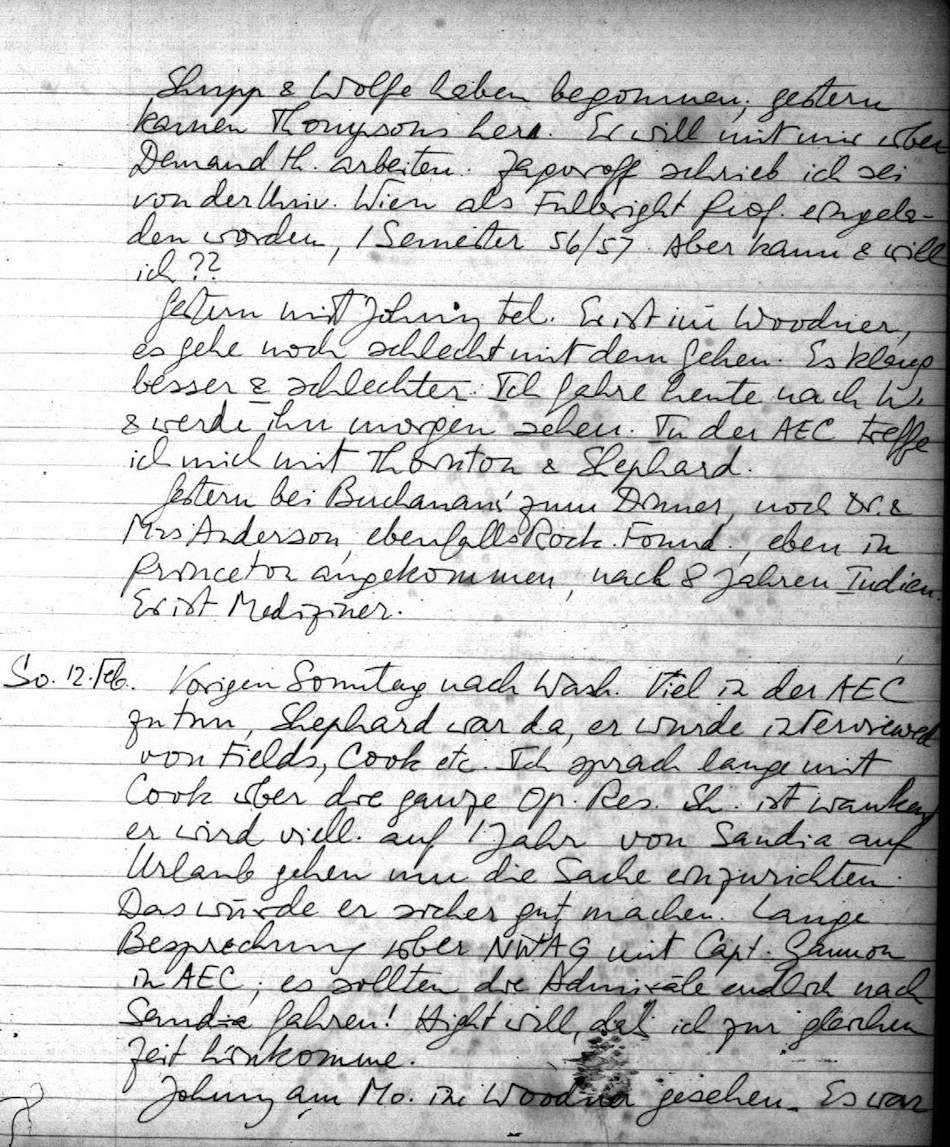 Shupp & Wolfe haben begonnen; gestern
kamen Thompsons her. Er will mit mir über
Demand th. arbeiten. schrieb ich sei
von der Univ. Wien als Fulbright Prof. eingela-
den worden, 1 Semester 56/57. Aber kann & will
ich ??
Gestern mit Johnny tel. Er ist im Woodner,
es gehe noch schlecht mit dem Gehen. Es klang
besser & schlechter. Ich fahre heute nach W.
& werde ihn morgen sehen. In der AEC treffe
ich mich mit Thornton & Shephard.
Gestern bei Buchanans' zum Dinner, noch Dr. &
Mrs Anderson, ebenfalls Rock. Found., eben in
Princeton angekommen, nach 8 Jahren Indien.
Er ist Mediziner.
So. 12. Feb. Vorigen Sonntag nach Wash. Viel in der AEC
zu tun, Shephard war da, er wurde interviewed
von Fields, Cook etc. Ich sprach lange mit
Cook über die ganze Op. Res. Sh. ist wankend
er wird viell. auf 1 Jahr von Sandia auf
Urlaub gehen um die Sache einzurichten.
Das würde er sicher gut machen. Lange
Besprechung über NWAG mit Capt. Gannon
in AEC; es sollten die Admiräle endlich nach
Sandia fahren! Hight will, daß ich zur gleichen
Zeit hinkomme.
Johnny am Mo. im Woodner gesehen. Es war